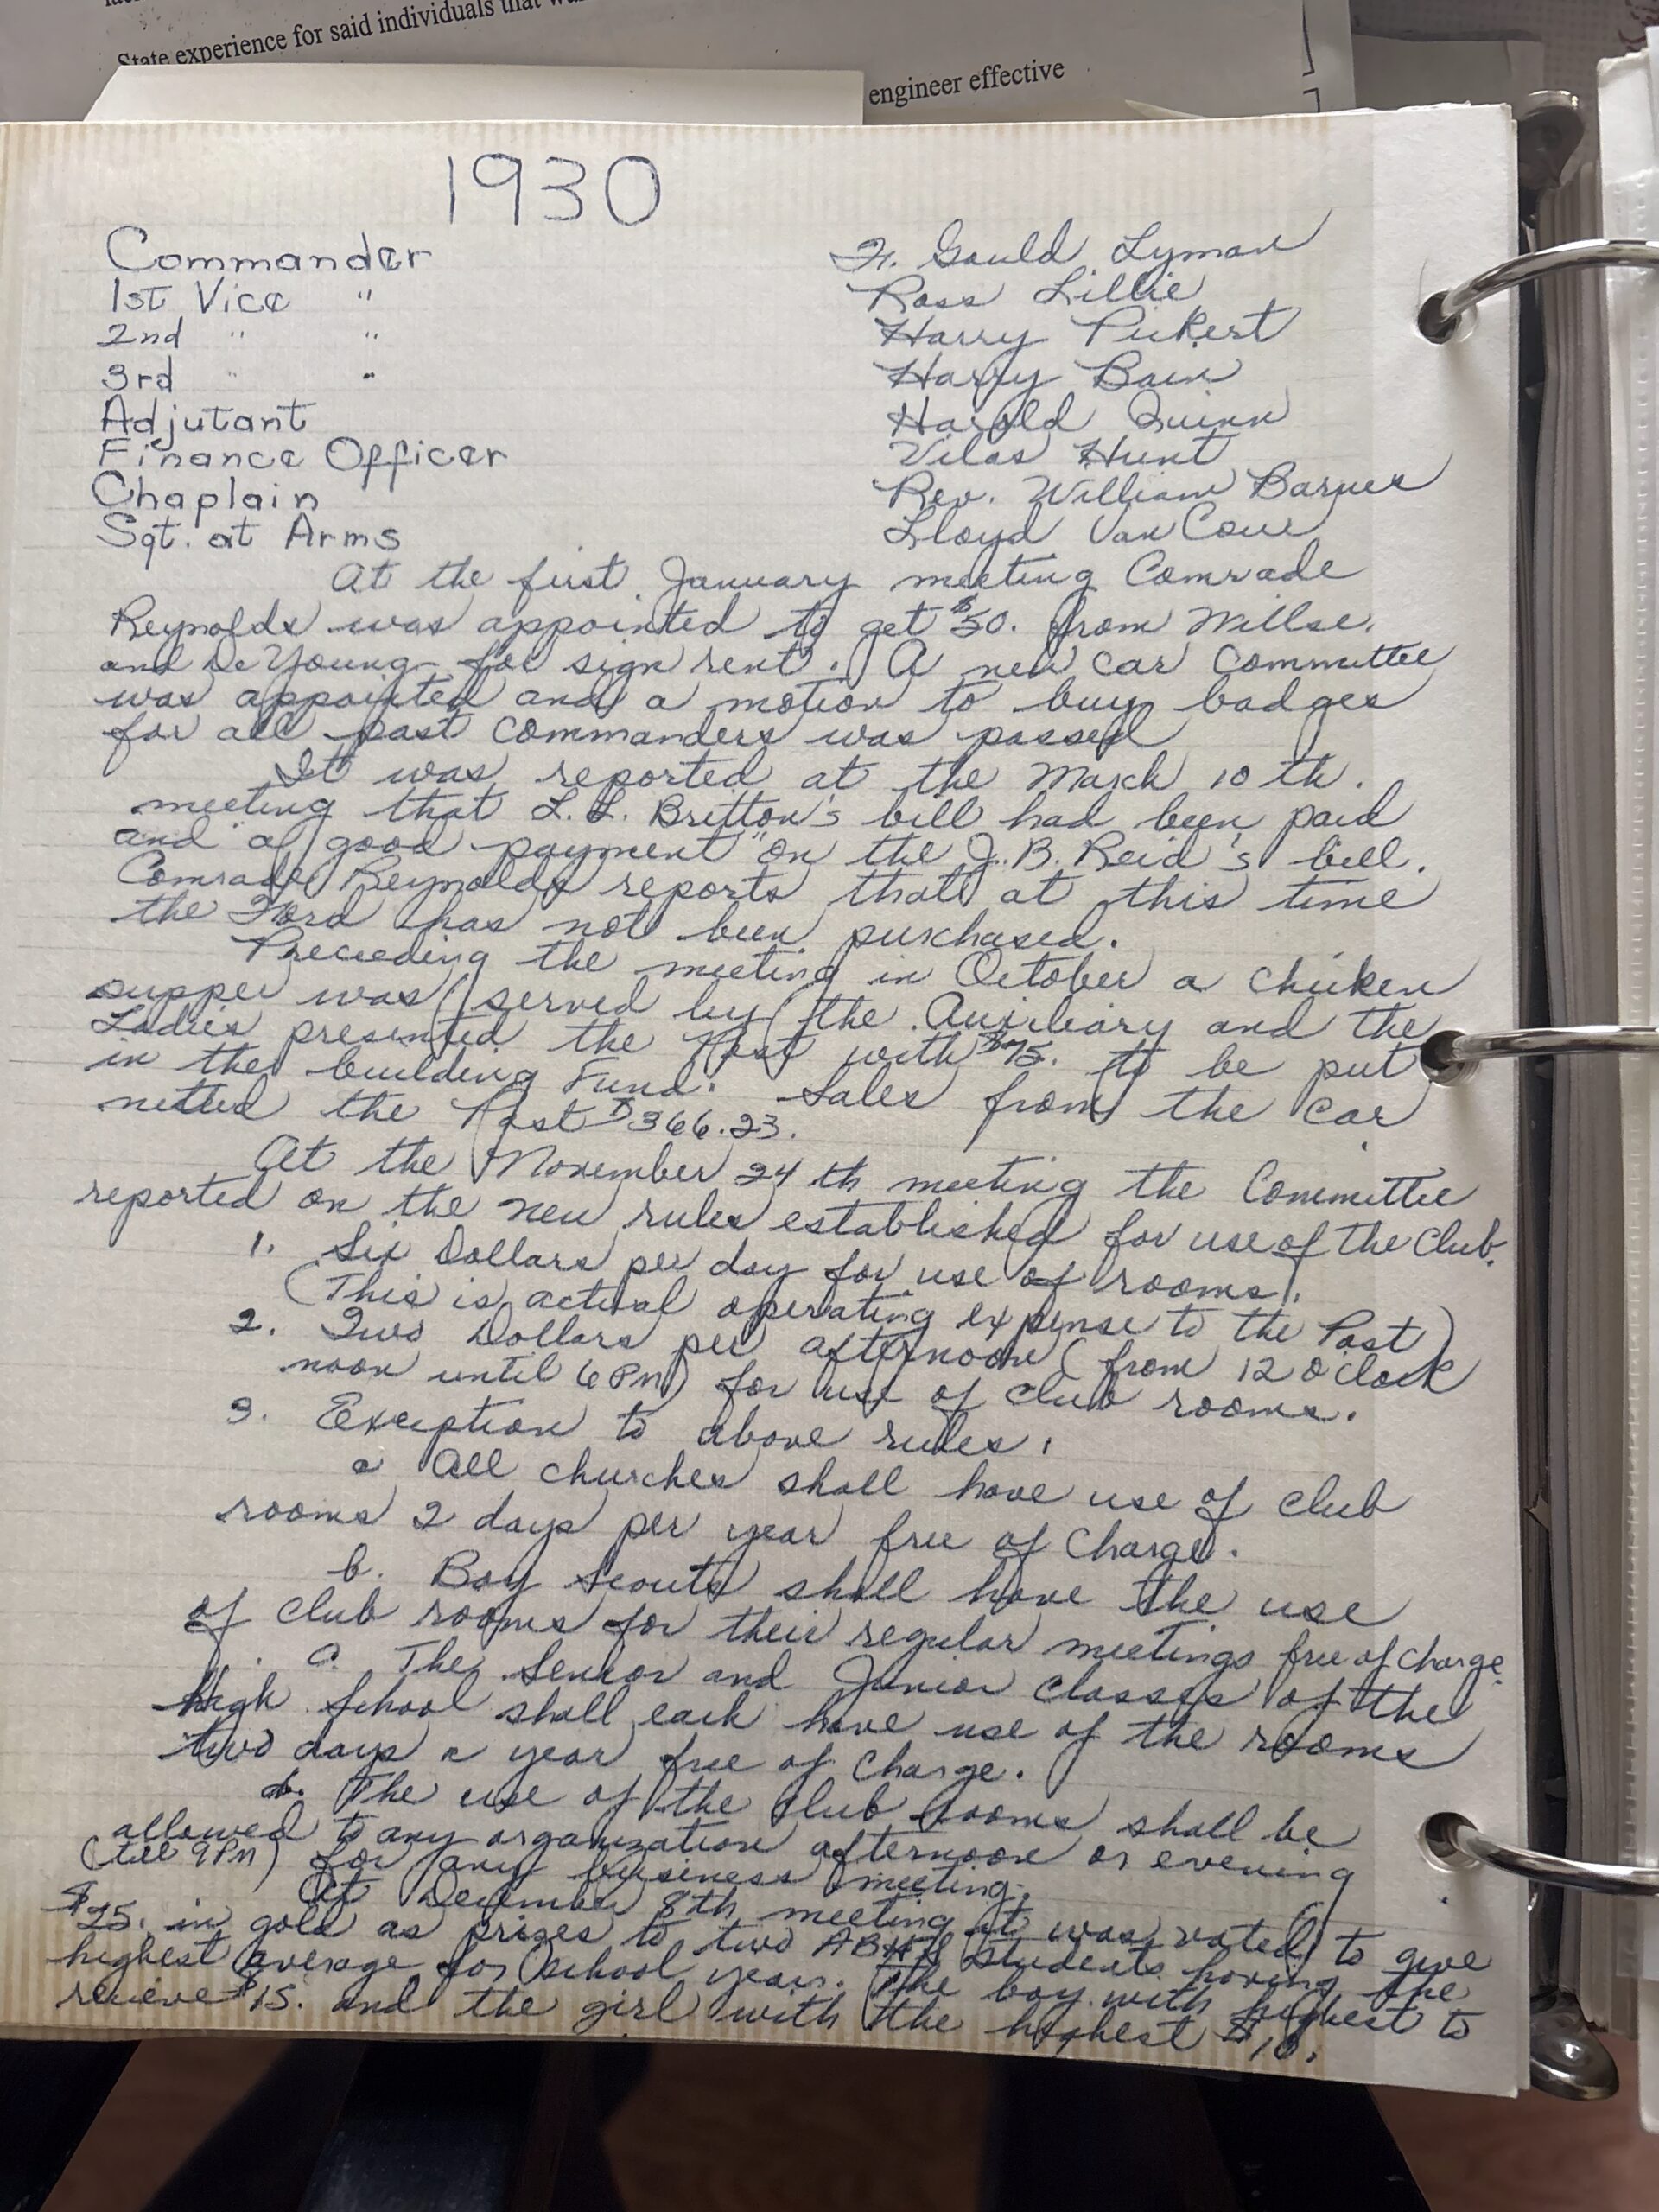 State experience for said individuals that
engineer effective
1930
Commander F. Gould Lyman
1st Vice " Ross Lillie
2nd " " Harry Pickert
3rd " " Harry Bain
Adjutant Harold Quinn
Finance Officer Vilas Hunt
Chaplain Rev. William Barnes
Sgt. at Arms Lloyd Van Coure
At the first January meeting Comrade
Reynolds was appointed to get $50. from Millse.
and DeYoung for sign rent. A new car committee
was appointed and a motion to buy badges
for all past commanders was passed
It was reported at the March 10 th.
meeting that L.L. Britton's bill had been paid
and "a good payment" on the J.B. Reid's bill.
Comrade Reynolds reports that at this time
the Ford has not been purchased.
Preceeding the meeting in October a chicken
supper was served by the Auxiliary and the
Ladies presented the Post with $75. to be put
in the building Fund. Sales from the car
netted the Post $366.23.
At the November 24 th meeting the Committee
reported on the new rules established for use of the Club.
1. Six Dollars per day for use of rooms.
(This is actual operating expense to the Post)
2. Two Dollars per afternoon (from 12 o'clock
noon until 6 PM) for use of club rooms.
3. Exception to above rules.
a All churches shall have use of club
rooms 2 days per year free of charge.
b. Boy Scouts shall have the use
of club rooms for their regular meetings free of charge.
c. The Senior and Junior classes of the
high School shall each have use of the rooms
two days a year free of charge.
d. The use of the club rooms shall be
allowed to any organization afternoon or evening
(till 9 PM) for any business meeting.
At December 8th meeting it was voted to give
$25. in gold as prizes to two ABHS students having the
highest average for school year. The boy with highest to
recieve $15. and the girl with the highest $10.